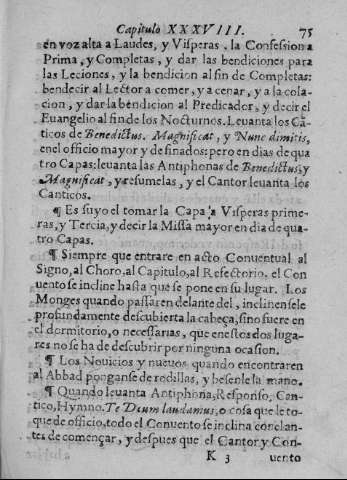 Capitulo XXXVIII. 75
en voz alta a Laudes, y Visperas, la Confession a
Prima, y Completas, y dar las bendiciones para
las Leciones, y la bendicion al fin de Completas:
bendecir al Lector a comer, y a cenar, y a la cola
cion, y dar la bendicion al Predicador, y decir el
Euangelio al fin de los Nocturnos. Leuanta los Cã
ticos de Benedictus. Magnificat, y Nunc dimitis,
en el officio mayor y de finados: pero en dias de qua
tro Capas: leuanta las Antiphonas de Benedictus, y
Magnificat, y resumelas, y el Cantor leuanta los
Canticos.
¶ Es suyo el tomar la Capa a Visperas prime-
ras, y Tercia, y decir la Missa mayor en dia de qua
tro Capas.
¶ Siempre que entrare en acto Conuentual al
Signo, al Choro, al Capitulo, al Refectorio, el Con
uento se incline hasta que se pone en su lugar. Los
Monges quando passaren delante del, inclinensele
profundamente descubierta la cabeça, sino fuere en
el dormitorio, o necessarias, que en estos dos luga-
res no se ha de descubrir por ninguna ocasion.
¶ Los Nouicios y nueuos quando encontraren
al Abbad ponganse de rodillas, y besenle la mano.
¶ Quando leuanta Antiphona, Responso, Can-
tico, Hymno, Te Deum laudamus, o cosa que le to-
que de officio, todo el Conuento se inclina con el an-
tes de començar, y despues que el Cantor y Con-
K 3 uento